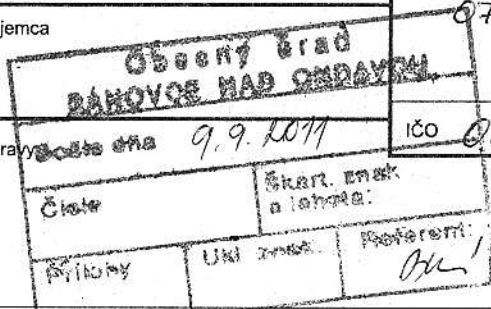 jemca
07
Obecný úrad
BÁNOVCE NAD ONDAVOU
ravy Došlo dňa 9.9.2011 IČO 0
Číslo
Škart. znak
a lehota:
Prílohy
Ukl. znak:
Referent: